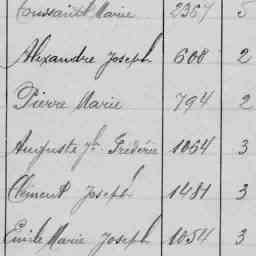 Toussaint Marie 2367 5
Alexandre Joseph 608 2
Pierre Marie 794 2
Auguste Jh. Frédéric 1064 3
Clément Joseph 1481 3
Emile Marie Joseph 1054 3